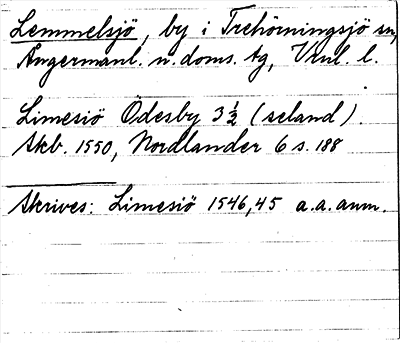 Lemmelsjö, by i Trehörningsjö sn,
Ångermanl. n. doms. tg, Vnl. l.
Limesiö Ödesby 3½ (seland).
Skb. 1550, Nordlander 6 s. 188
Skrives: Limesiö 1546, 45 a.a. anm.